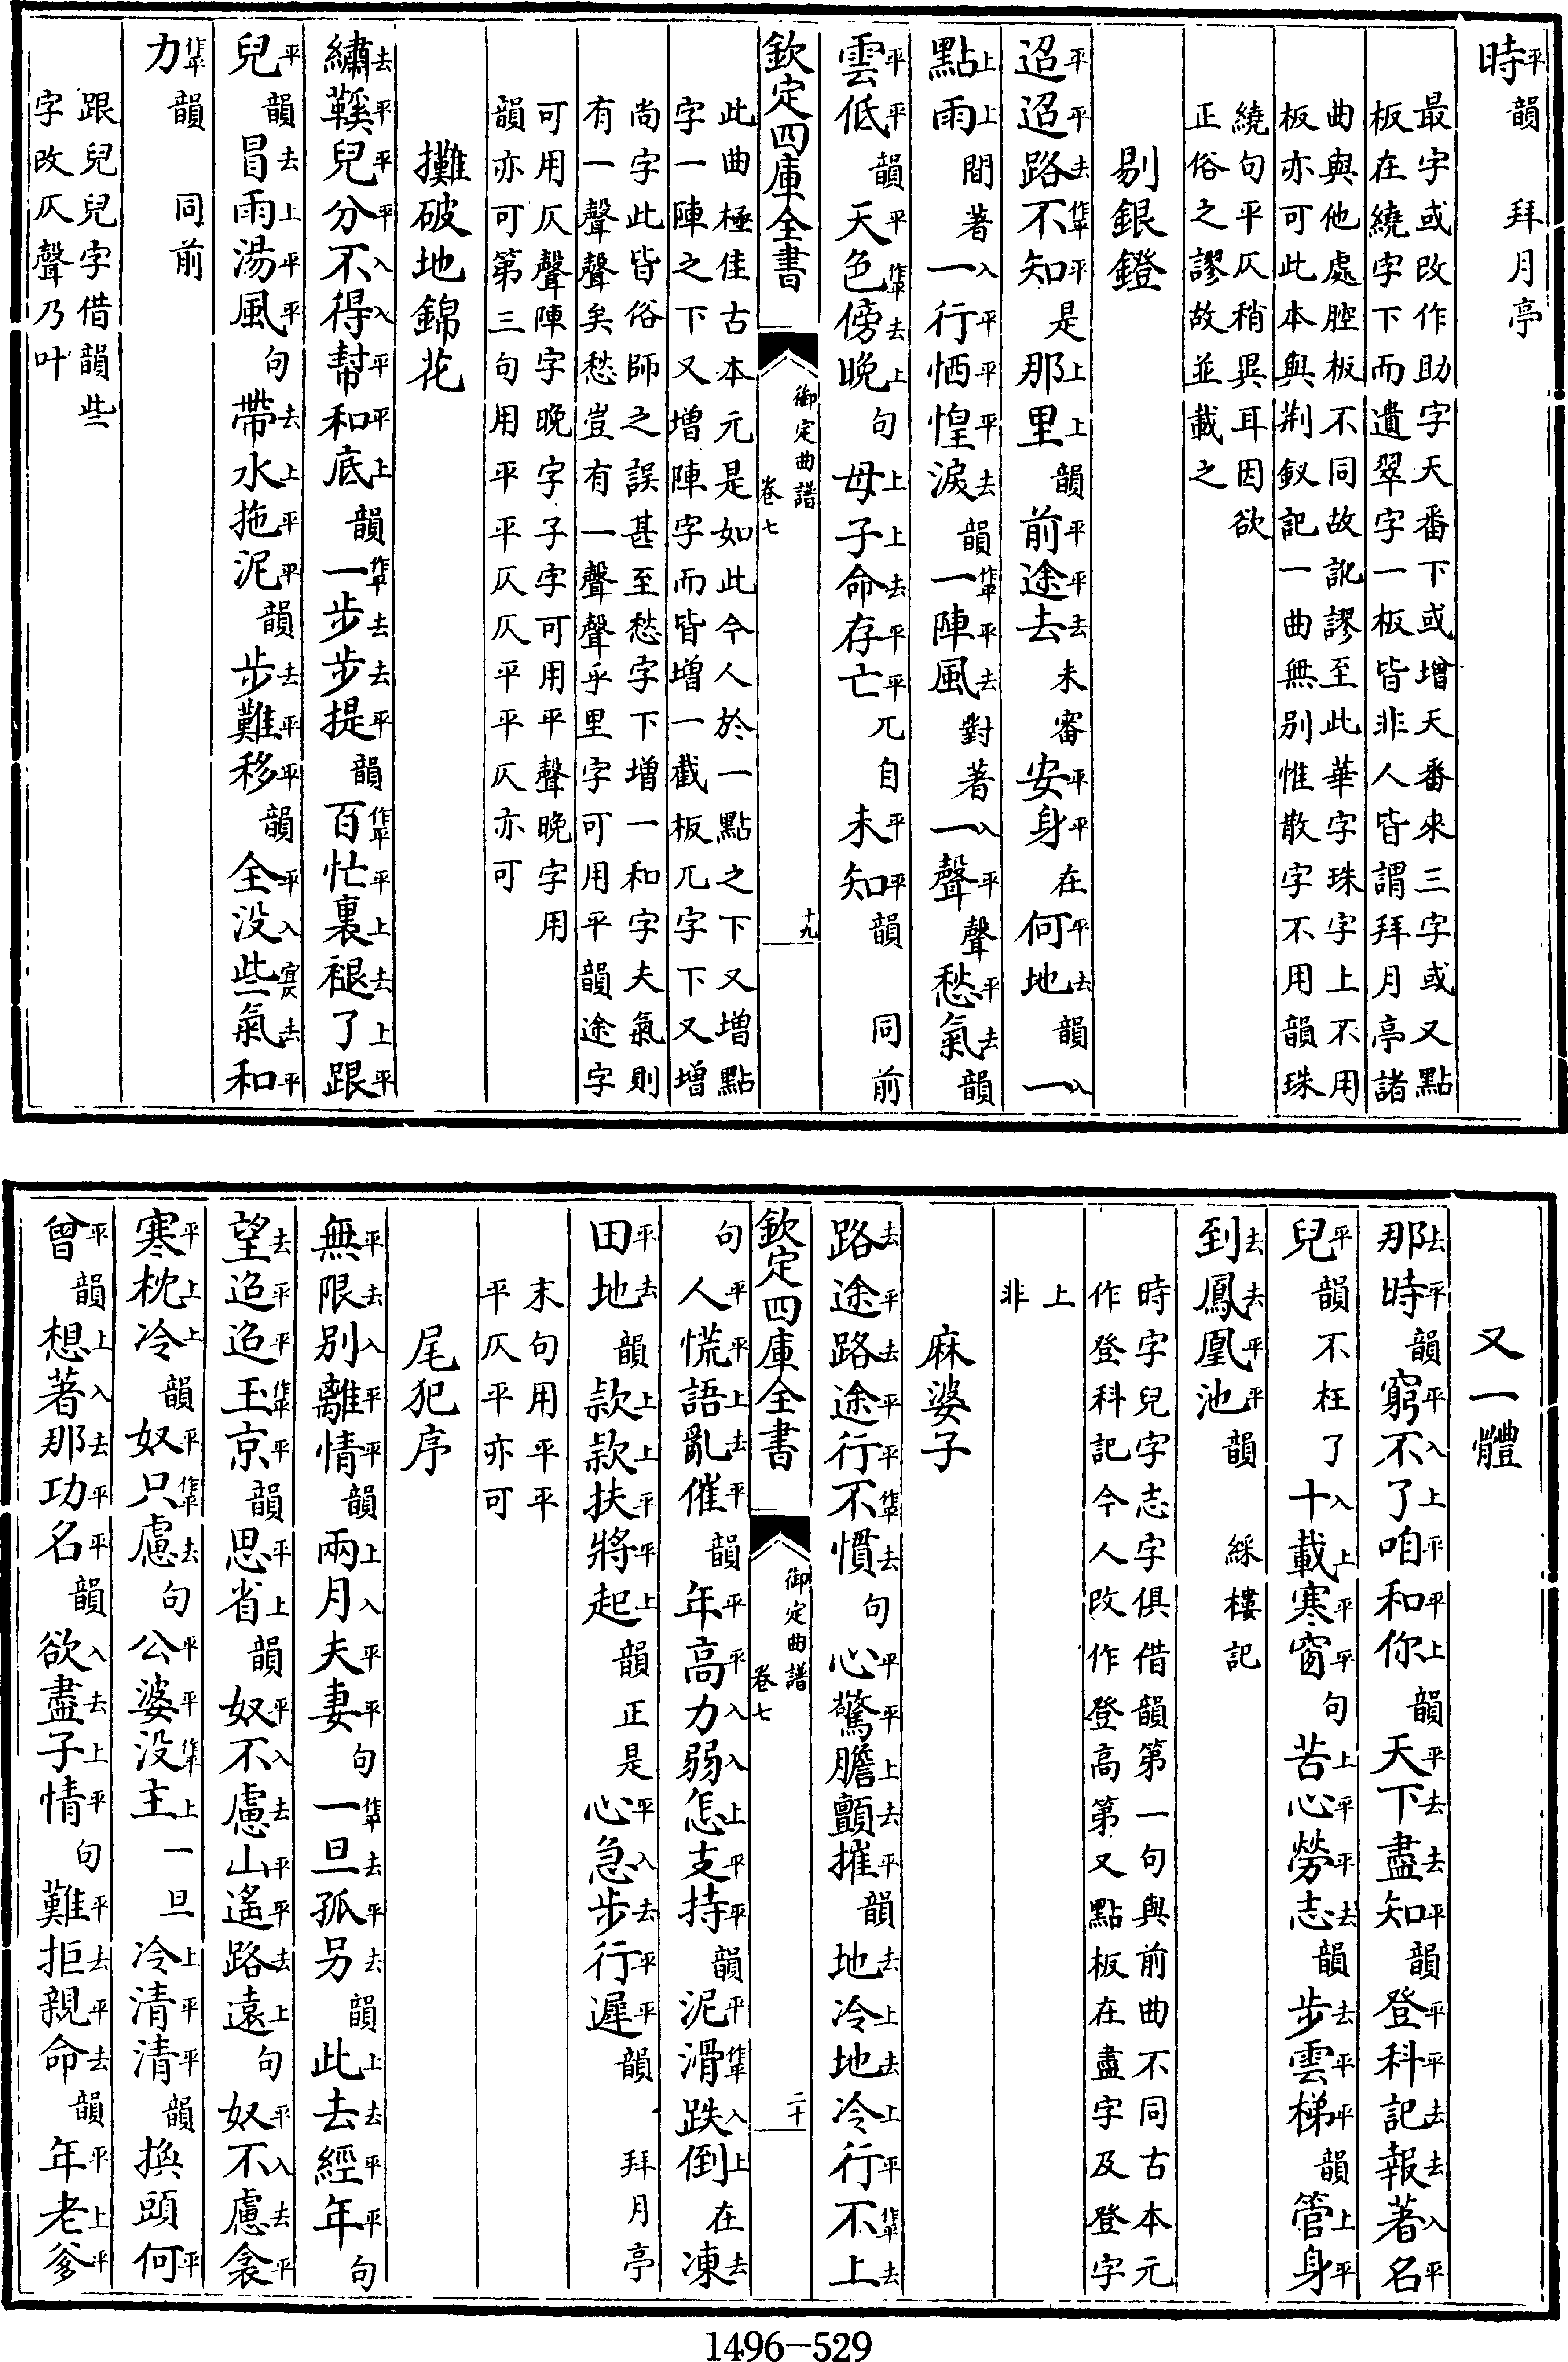 時平韻　拜月亭
最字或改作助字天番下或增天番來三字或又點
板在繞字下而遺翠字一板皆非人皆謂拜月亭諸
曲與他處腔板不同故訛謬至此華字珠字上不用
板亦可此本與荆釵記一曲無别惟散字不用韻珠
繞句平仄稍異耳因欲
正俗之謬故並載之
剔銀鐙
迢平迢平路去不作平知平是那上里上韻前平途平去去未審安平身平在何平地去韻一入
點上雨上間著一入行平恓平惶平淚去韻一作平陣平風去對著一入聲平聲愁平氣去韻
雲平低平韻天平色作平傍去晚上句母上子上命去存平亡平兀自未平知平韻　同前
欽定四庫全書　御定曲譜　卷七　十九
此曲極佳古本元是如此今人於一點之下又增點
字一陣之下又增陣字而皆增一截板兀字下又增
尚字此皆俗師之誤甚至愁字下增一和字夫氣則
有一聲聲矣愁豈有一聲聲乎里字可用平韻途字
可用仄聲陣字晚字子字可用平聲晚字用
韻亦可第三句用平平仄仄平平仄亦可
攤破地錦花
繡去鞵平兒平分平不入得入幫平和平底上韻一作平步去步去提平韻百作平忙平裏上褪去了上跟平
兒平韻冒去雨上湯平風平句帶去水上拖平泥平韻步去難平移平韻全平没入些氣去和平
力作平韻　同前
跟兒兒字借韻些
字改仄聲乃叶
又一體
那去時平韻窮平不入了上咱平和平你上韻天平下去盡去知平韻登平科平記去報去著入名平
兒平韻不枉了十入載上寒平窗平句苦上心平勞平志去韻步去雲平梯平韻管上身平
到去鳳去凰平池平韻　綵樓記
時字兒字志字俱借韻第一句與前曲不同古本元
作登科記今人改作登高第又點板在盡字及登字
上
非
麻婆子
路去途平路去途平行平不作平慣去句心平驚平膽上顫去摧平韻地去冷上地去冷上行平不作平上去
欽定四庫全書　御定曲譜　卷七　二十
句人平慌平語上亂去催平韻年平高平力入弱入怎上支平持平韻泥平滑作平跌入倒上在凍去
田平地去韻款上款上扶平將平起上韻正是心平急入步去行平遲平韻　拜月亭
末句用平平
平仄平亦可
尾犯序
無平限去别入離平情平韻兩上月入夫平妻平句一作平旦去孤平另去韻此上去去經平年平句
望去迢平迢平玉作平京平韻思平省上韻奴平不入慮去山平遙平路去遠上句奴平不入慮去衾平
寒平枕上冷上韻奴平只作平慮去句公平婆平没作平主上一旦冷上清平清平韻換頭何平
曾平韻想上著入那去功平名平韻欲入盡去子上情平句難平拒去親平命去韻年平老上爹平
1496-529